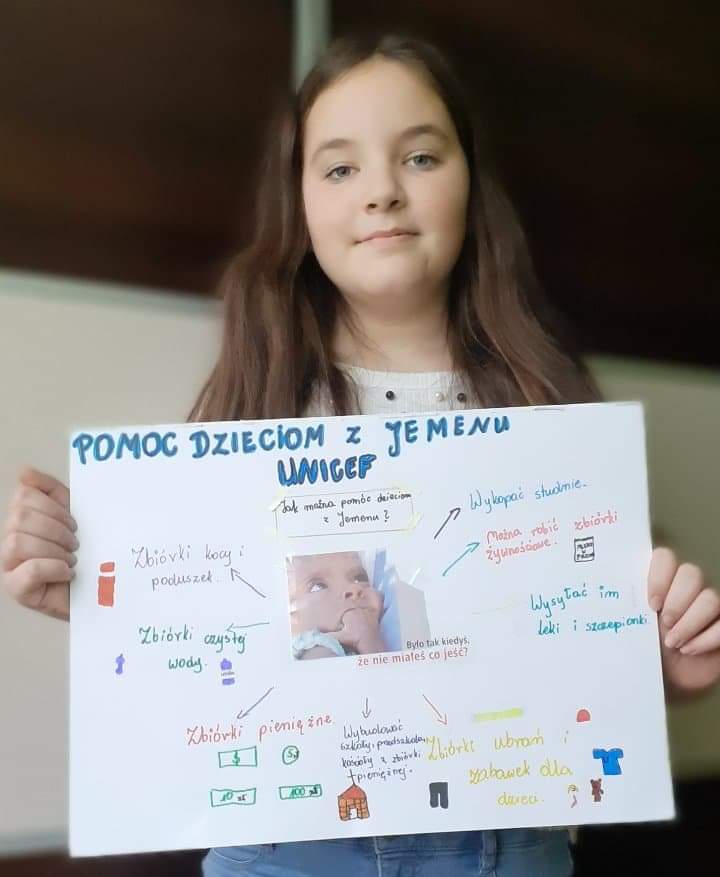 POMOC DZIECIOM Z JEMENU
UNICEF
Jak można pomóc dzieciom
z Jemenu?
Wykopać studnie.
Można robić zbiórki
żywnościowe.
Zbiórki kocy i
poduszek.
Wysyłać im
leki i szczepionki.
Zbiórki czystej
wody.
Było tak kiedyś,
że nie miałeś co jeść?
Zbiórki pieniężne.
$
5zł
10 zł
100 zł
Wybudować
szkoły, przedszkola,
kościoły z zbiórki
pieniężnej.
Zbiórki ubrań i
zabawek dla
dzieci.